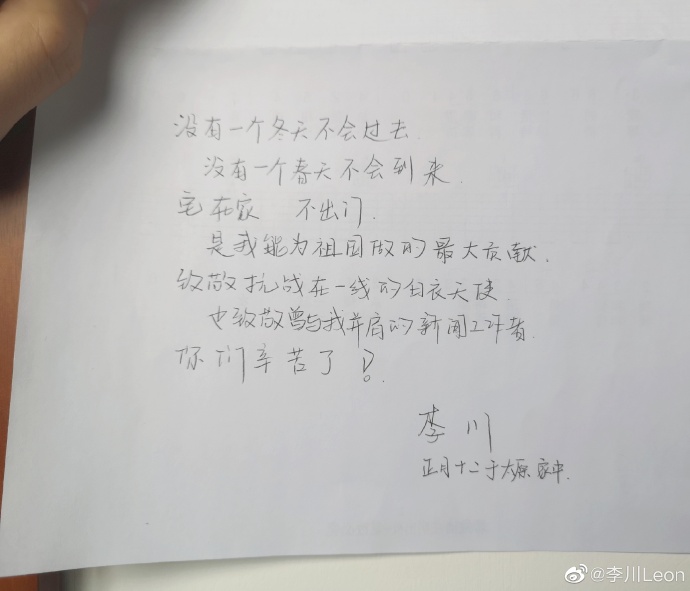 没有一个冬天不会过去.
没有一个春天不会到来.
宅在家 不出门.
是我能为祖国做的最大贡献.
致敬抗战在一线的白衣天使.
也致敬曾与我并肩的新闻工作者.
你们辛苦了!
李川
正月十二于太原家中.
@李川Leon